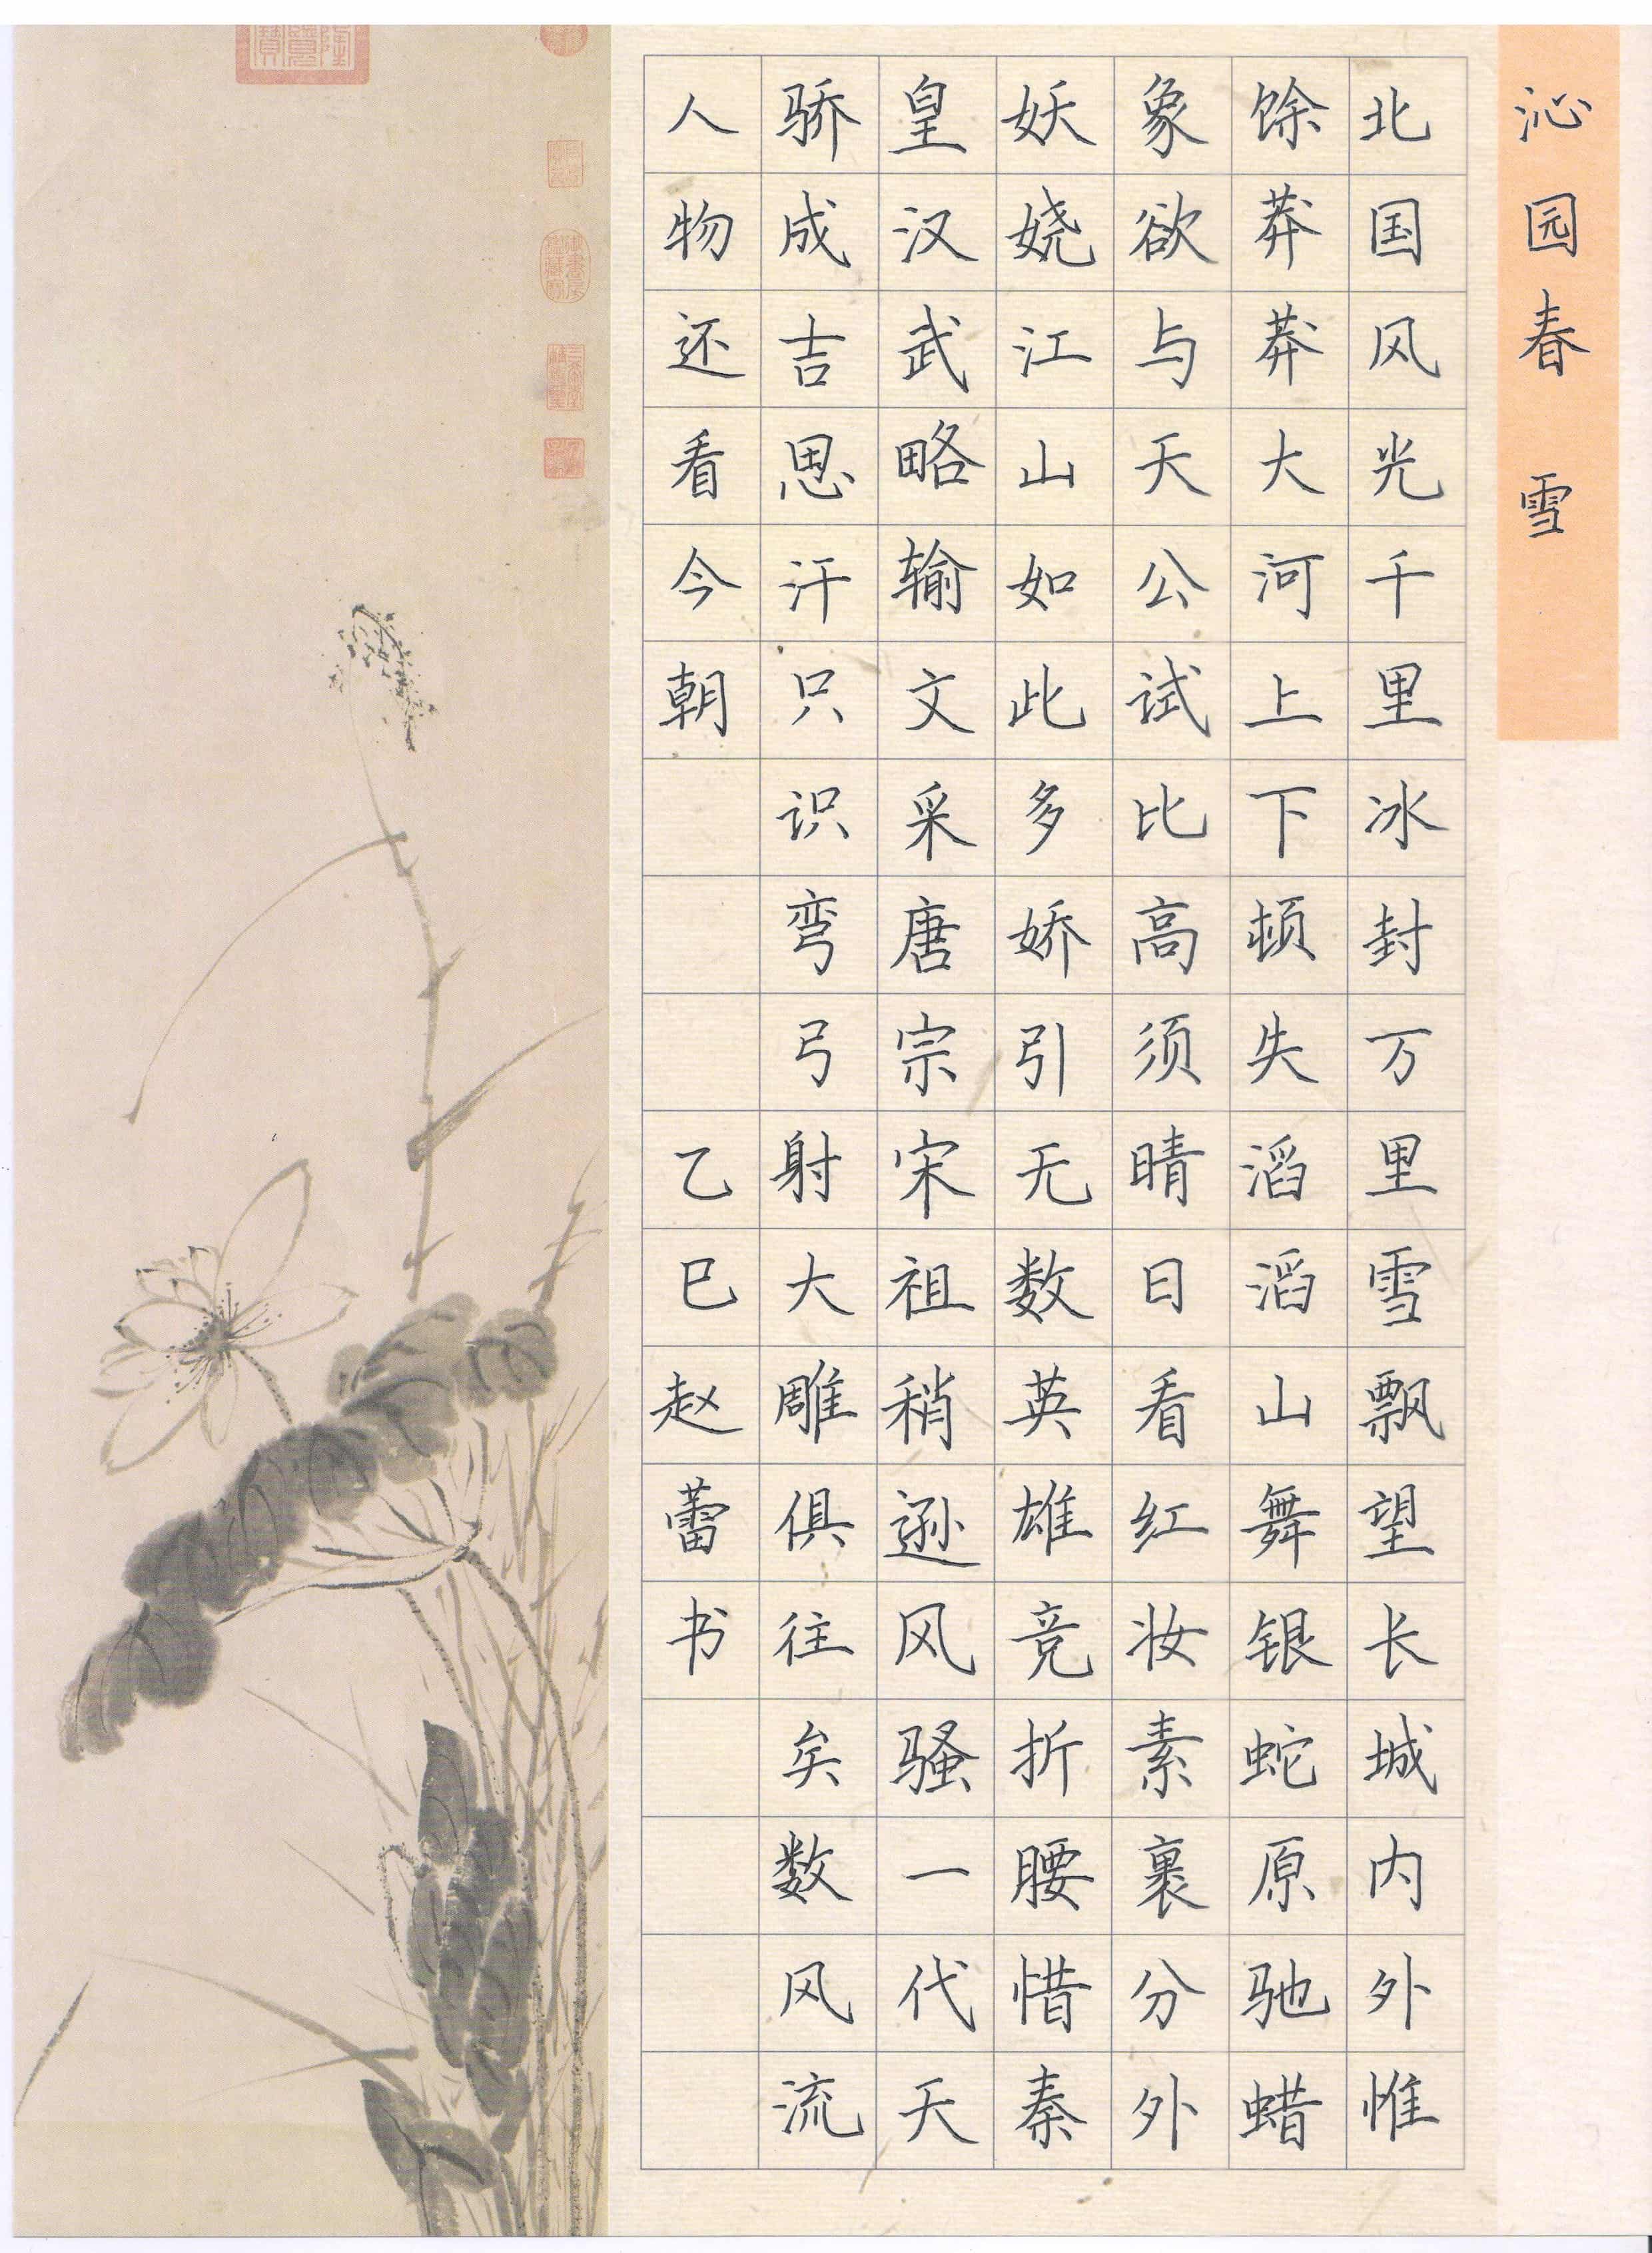 沁园春 雪
北国风光千里冰封万里雪飘望长城内外惟
馀莽莽大河上下顿失滔滔山舞银蛇原驰蜡
象欲与天公试比高须晴日看红妆素裹分外
妖娆江山如此多娇引无数英雄竞折腰惜秦
皇汉武略输文采唐宗宋祖稍逊风骚一代天
骄成吉思汗只识弯弓射大雕俱往矣数风流
人物还看今朝 乙巳赵蕾书